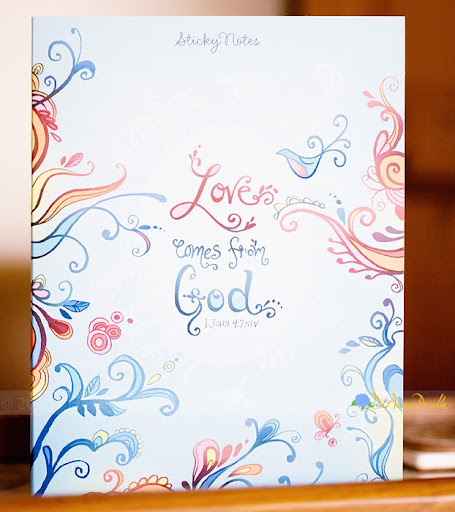 Sticky Notes
Love
comes from
God
1 JOHN 4:7 NIV